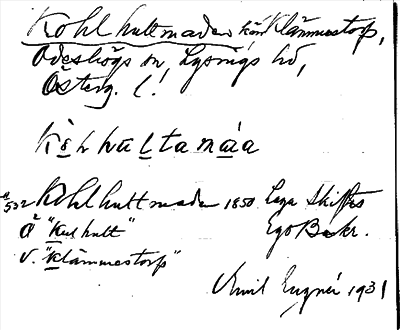 Kohlhultmaden kär Klämmestorp,
Ödeshögs sn, Lysings hd,
Österg. l!
Kò̱lhu̱ḻtamá̱a
# 532 Kohlhultmaden 1850 Laga Skiftes
å "Kulhult" Ego Bskr.
v. "Klämmestorp"
Emil Engnér 1931